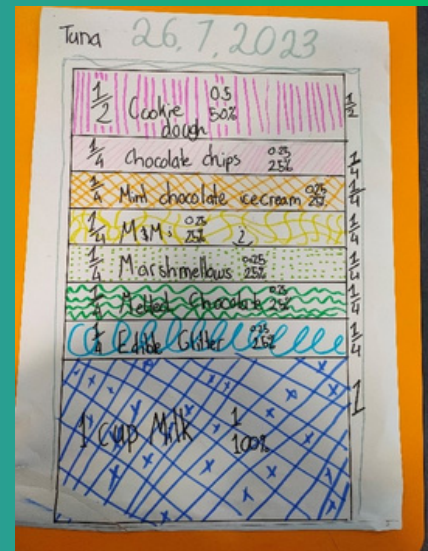 Tuna 26.7.2023
1/2 Cookie dough 0.5 50% 1/2
1/4 Chocolate chips 0.25 25% 1/4
1/4 Mint chocolate icecream 0.25 25% 1/4
1/4 M&Ms 0.25 25% 1/4
1/4 Marshmellows 0.25 25% 1/4
1/4 Melted Chocolate 0.25 25% 1/4
1/4 Edible Glitter 0.25 25% 1/4
1 cup Milk 1 100% 1